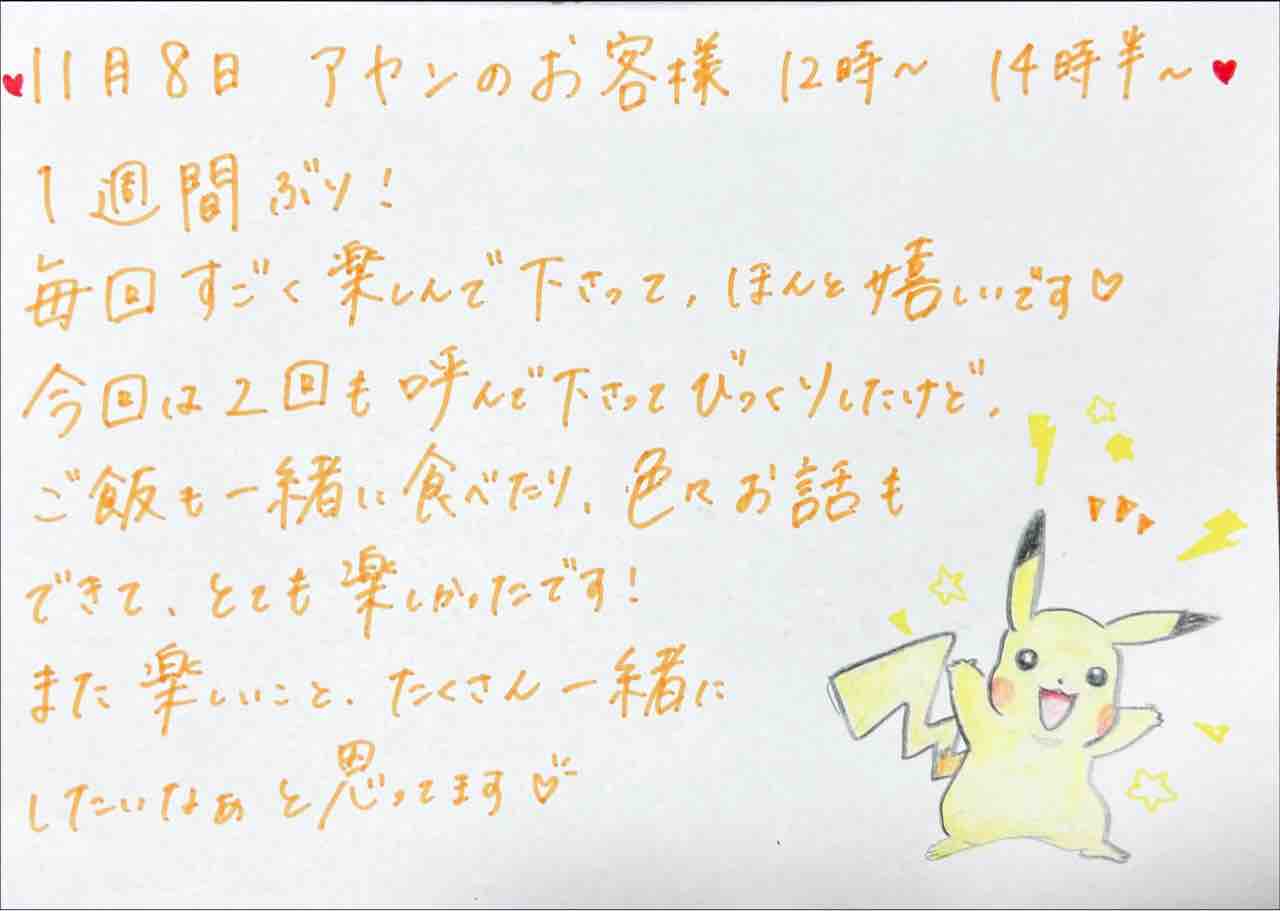 ♥11月8日 アヤンのお客様 12時~ 14時半~♥
1週間ぶり!
毎回すごく楽しんで下さって、ほんと嬉しいです♡
今回は2回も呼んで下さってびっくりしたけど、
ご飯も一緒に食べたり、色々お話も
できて、とても楽しかったです!
また楽しいこと、たくさん一緒に
したいなぁと思ってます♡